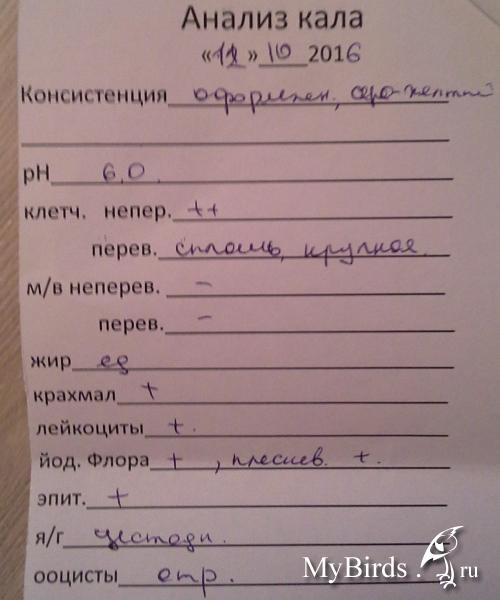 Анализ кала
«12» 10 2016
Консистенция оформлен, серо-желтый
pH 6,0.
клетч. непер. ++
перев. сплошь, крупная.
м/в неперев. –
перев. –
жир ед
крахмал +
лейкоциты +.
йод. Флора +, плеснев. +.
эпит. +
я/г цестоды.
ооцисты отр.
MyBirds.ru